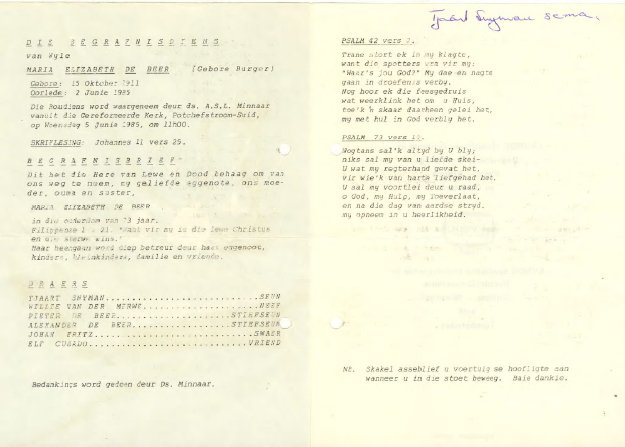 DIE BEGRAFNISDIENS
van Wyle
MARIA ELIZABETH DE BEER (Gebore Burger)
Gebore: 15 Oktober 1911
Oorlede: 2 Junie 1985
Die Roudiens word waargeneem deur ds. A.S.L. Minnaar
vanuit die Gereformeerde Kerk, Potchefstroom-Suid,
op Woensdag 5 Junie 1985, om 11h00.
SKRIFLESING: Johannes 11 vers 25.
BEGRAFNISBRIEF
Dit het die Here van Lewe en Dood behaag om van
ons weg te neem, my geliefde eggenote, ons moe-
der, ouma en suster,
MARIA ELIZABETH DE BEER
in die ouderdom van 73 jaar.
Filippense 1 : 21. "Want vir my is die lewe Christus
en die sterwe wins."
Haar heengaan word diep betreur deur haar eggenoot,
kinders, kleinkinders, familie en vriende.
DRAERS
TJAART SNYMAN...........................SEUN
WILLIE VAN DER MERWE....................NEEF
PIETER DE BEER.....................STIEFSEUN
ALEXANDER DE BEER..................STIEFSEUN
JOHAN FRITZ............................SWAER
ELF CUERDO............................VRIEND
Bedankings word gedoen deur Ds. Minnaar.
Tjaart Snyman se ma.
PSALM 42 vers
Trane stort ek in my klagte,
want die spotters vra vir my:
"Waar's jou God?" My dae en nagte
gaan in droefenis verby.
Nog hoor ek die feesgedruis
wat weerklink het om u Huis,
toe'k 'n skaar daarheen gelei het,
my met hul in God verbly het.
PSALM 73 vers
Nogtans sal'k altyd by U bly;
niks sal my van u liefde skei-
U wat my regterhand gevat het,
vir wie'k van harte liefgehad het.
U sal my voortlei deur u raad,
o God, my Hulp, my Toeverlaat,
en na die dag van aardse stryd
my opneem in u heerlikheid.
NE. Skakel asseblief u voertuig se hoofligte aan
wanneer u in die stoet beweeg. Baie dankie.